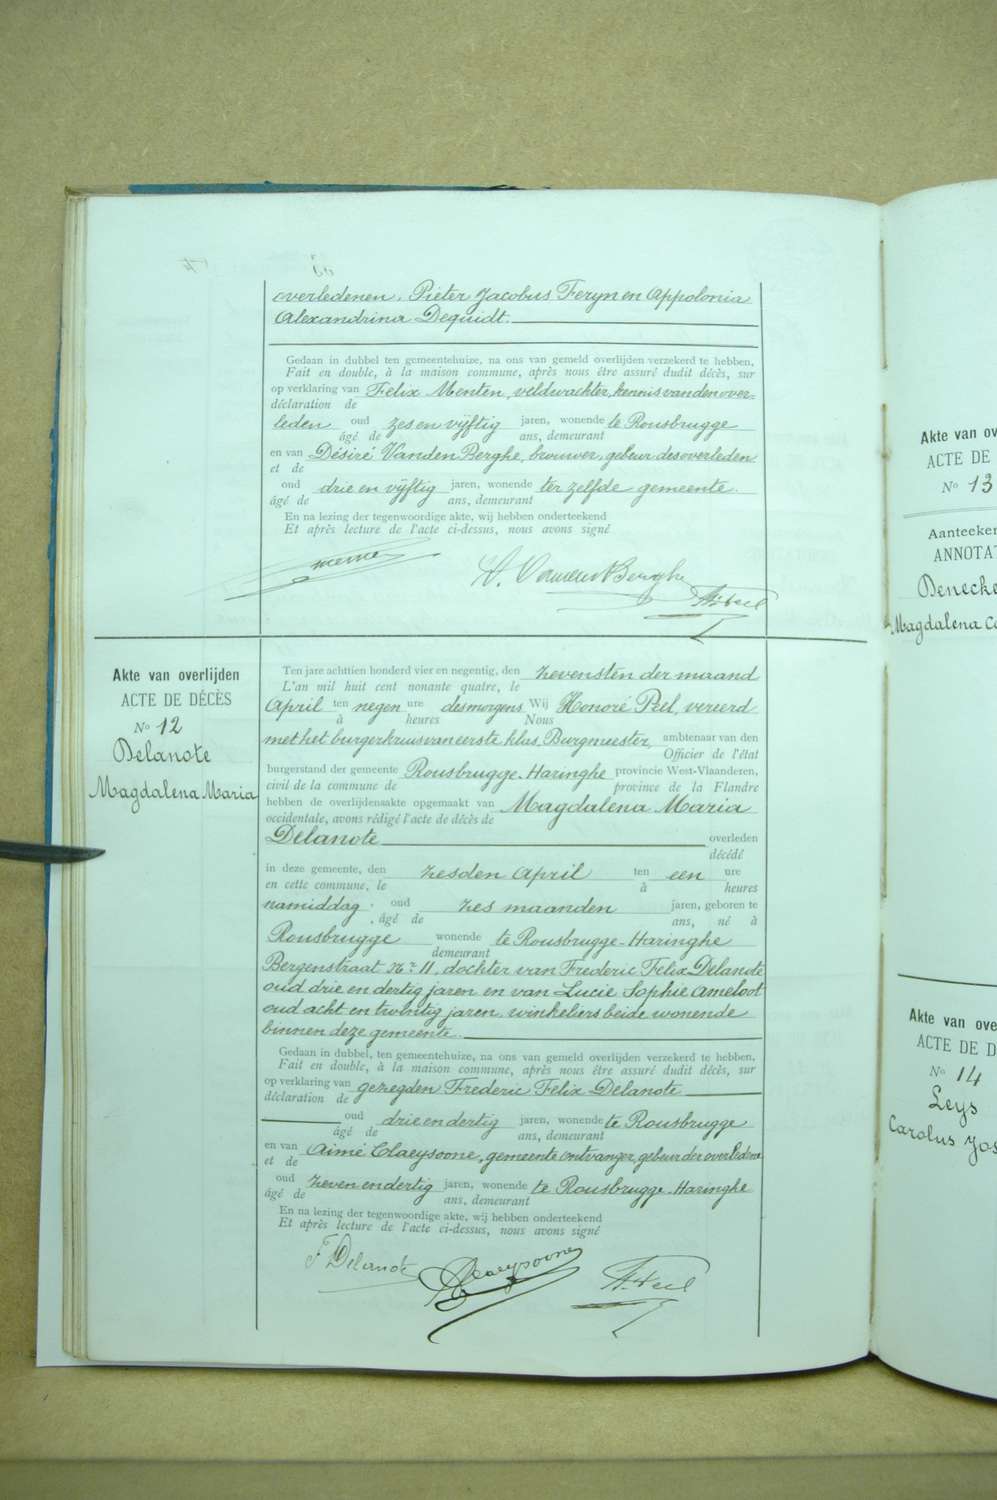 overledenen, Pieter Jacobus Feryn en Appolonia
Alexandrina Dequidt.
Gedaan in dubbel ten gemeentehuize, na ons van gemeld overlijden verzekerd te hebben,
Fait en double, à la maison commune, après nous être assuré dudit décès, sur
op verklaring van Felix Menten, veldwachter, kennis van den over-
déclaration de
leden oud zes en vijftig jaren, wonende te Rousbrugge
âgé de ans, demeurant
en van Désiré Vanden Berghe, brouwer, gebuur des overleden
et de
oud drie en vijftig jaren, wonende ter zelfde gemeente.
âgé de ans, demeurant
En na lezing der tegenwoordige akte, wij hebben onderteekend
Et après lecture de l'acte ci-dessus, nous avons signé
D. Vanden Berghe
H. Peel
Akte van overlijden
ACTE DE DÉCÈS
No 12
Delanote
Magdalena Maria
Ten jare achttien honderd vier en negentig, den zevensten der maand
L'an mil huit cent nonante quatre, le
April ten negen ure des morgens Wij Honoré Peel, vereerd
à heures Nous
met het burgerkruis van eerste klas, Burgmeester, ambtenaar van den
Officier de l'état
burgerstand der gemeente Rousbrugge-Haringhe provincie West-Vlaanderen,
civil de la commune de province de la Flandre
hebben de overlijdensakte opgemaakt van Magdalena Maria
occidentale, avons rédigé l'acte de décès de
Delanote overleden
décédé
in deze gemeente, den zesden April ten een ure
en cette commune, le à heures
namiddag, oud zes maanden jaren, geboren te
âgé de ans, né à
Rousbrugge wonende te Rousbrugge-Haringhe
demeurant
Bergenstraat Nr 11, dochter van Frederic Felix Delanote
oud drie en dertig jaren en van Lucie Sophie Ameloot
oud acht en twintig jaren, winkeliers beide wonende
binnen deze gemeente.
Gedaan in dubbel, ten gemeentehuize, na ons van gemeld overlijden verzekerd te hebben,
Fait en double, à la maison commune, après nous être assuré dudit décès, sur
op verklaring van gezegden Frederic Felix Delanote
déclaration de
oud drie en dertig jaren, wonende te Rousbrugge
âgé de ans, demeurant
en van Aimé Claeysoone, gemeente ontvanger, gebuur der overledene
et de
oud zeven en dertig jaren, wonende te Rousbrugge-Haringhe
âgé de ans, demeurant
En na lezing der tegenwoordige akte, wij hebben onderteekend
Et après lecture de l'acte ci-dessus, nous avons signé
F Delanote Claeysoone H. Peel
Akte van ov
ACTE DE
No 13
Aanteeken
ANNOTAT
Denecke
Magdalena Co
Akte van ove
ACTE DE D
No 14
Leys
Carolus Jos